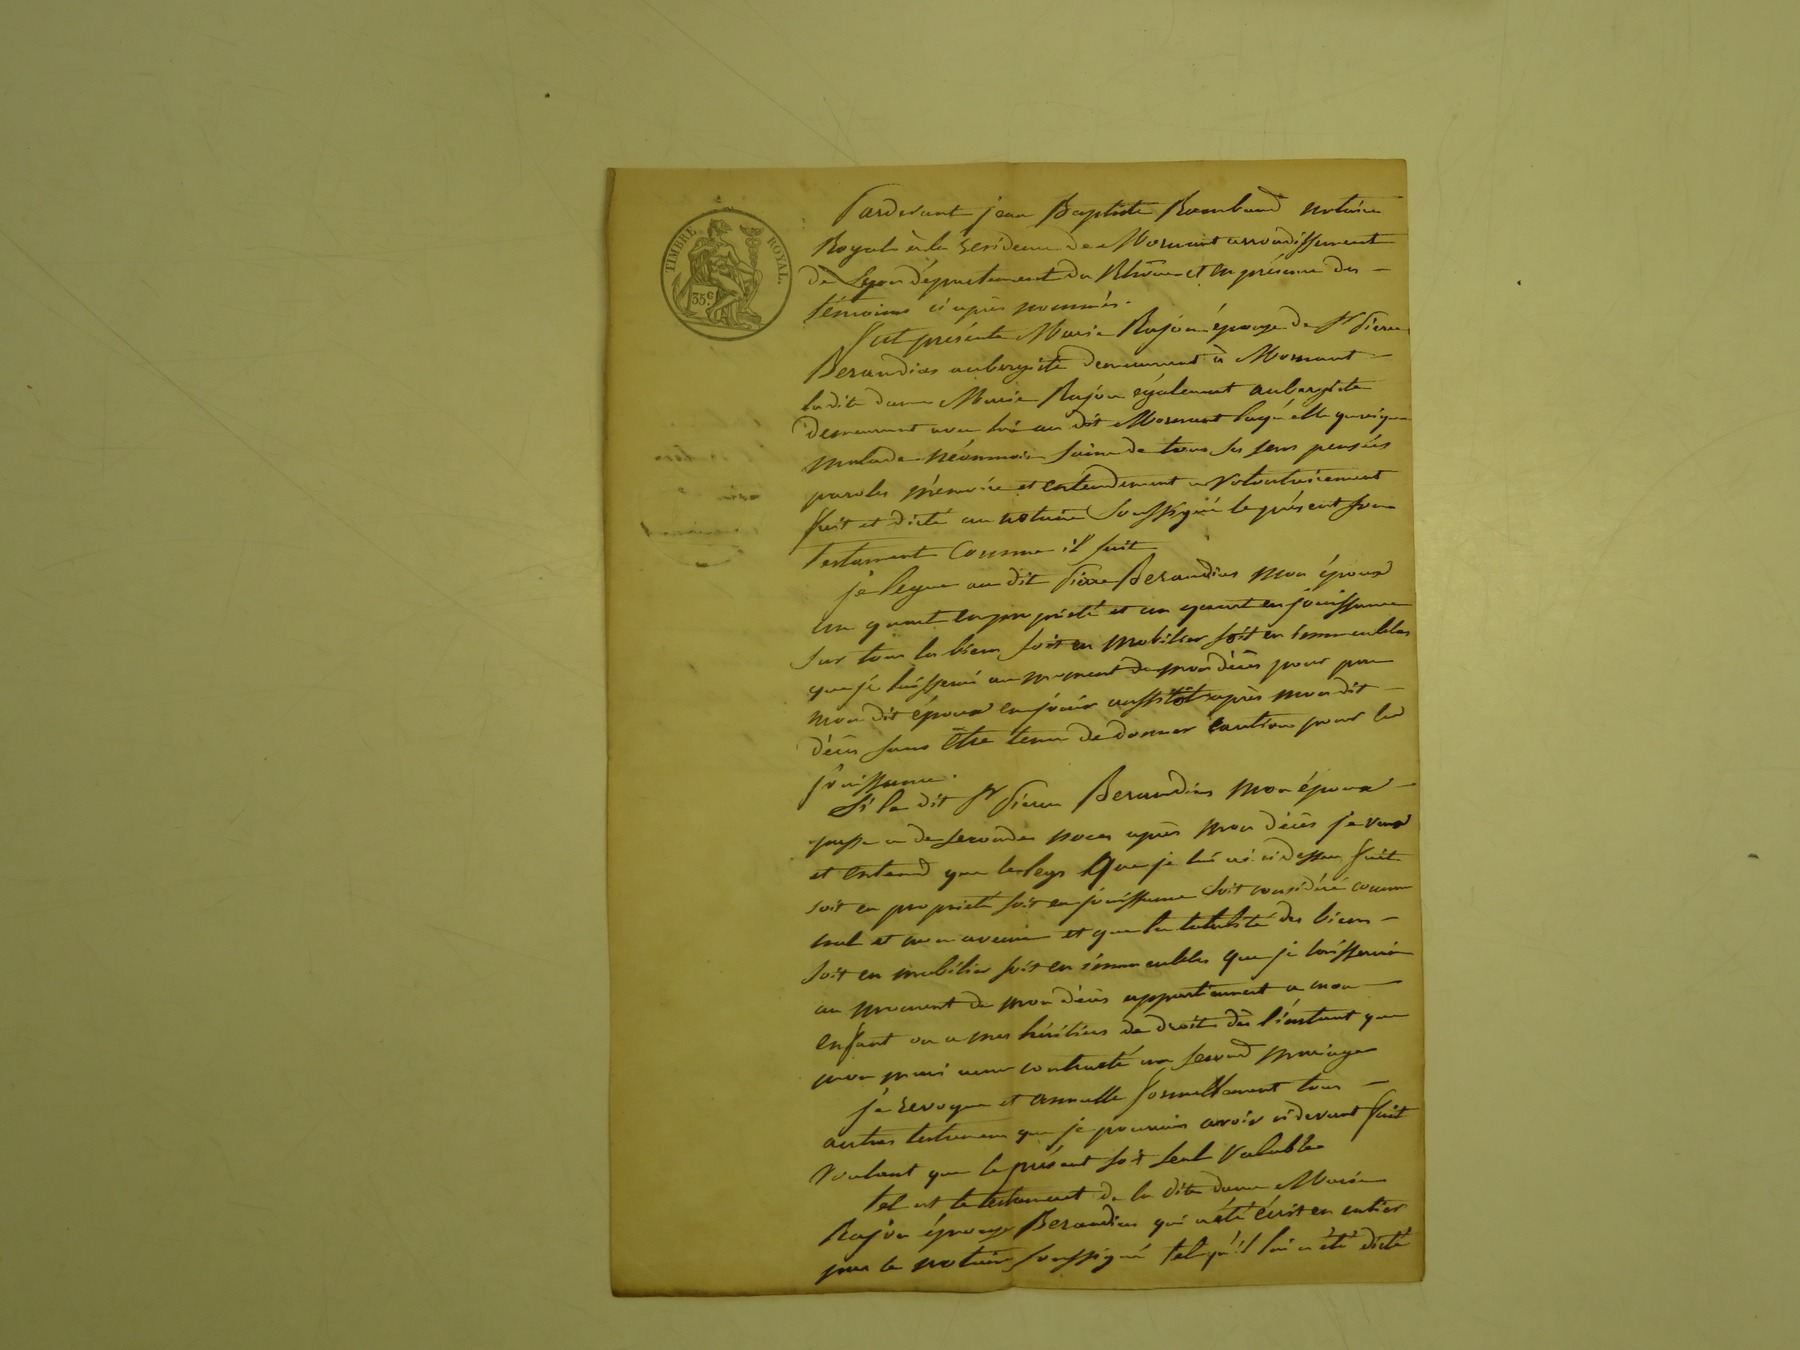 TIMBRE ROYAL.
35 c.
Pardevant jean Baptiste Rambaud notaire
Royal à la residence de Mornant arrondissement
de Lyon département du Rhône et en présence des
témoins ci après nommés.
fut présente Marie Rajon épouze de Sr Pierre
Beraudias aubergiste demeurant à Mornant
la dite dame Marie Rajon également aubergiste
demeurant avec lui au dit Mornant laq. elle quoique
malade néonmoins saine de tous ses sens pensées
paroles mémoire et entendement a volontairement
fait et dicté au notaire soussigné le présent son
testament Comme il suit
je legue au dit Pierre Beraudias mon époux
un quart en propriété et un quart en jouissance
sur tous les biens soit en mobilier soit en immeubles
que je laisserai au moment de mon décès pour par
mon dit époux en jouir aussitôt après mon dit
décès sans être tenu de donner caution pour la
jouissance.
Si le dit Sr Pierre Beraudias mon époux
passe a de secondes noces après mon décès je veux
et entend que le legs que je lui ai ci dessus fait
soit en propriété soit en jouissance soit considéré comme
nul et non avenu et que la totalité des biens
soit en mobilier soit en immeubles que je laisserai
au moment de mon décès appartiennent a mon
enfant ou a mes héritiers de droit dès l'instant que
mon mari aura contracté un second mariage
je revoque et annulle formellement tous
autres testamens que je pourrais avoir ci devant fait
voulant que le présent soit seul valable
tel est le testament de la dite dame Marie
Rajon épouze Beraudias qui a été écrit en entier
par le notaire soussigné tel qu'il lui a été dicté